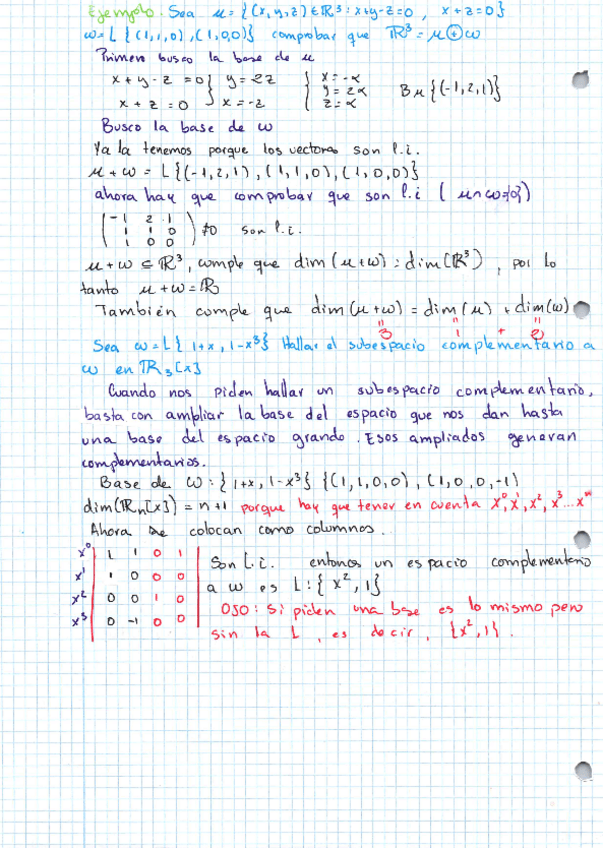 Ejemplo. Sea u = {(x,y,z) ∈ ℝ³ : x+y-z=0 , x+z=0}
w=L{(1,1,0),(1,0,0)} comprobar que ℝ³ = u ⊕ w
Primero busco la base de u
x+y-z=0 } y=2z { x=-α
x+z=0 } x=-z { y=2α Bu{(-1,2,1)}
z=α
Busco la base de w
Ya la tenemos porque los vectores son l.i.
u+w = L{(-1,2,1),(1,1,0),(1,0,0)}
ahora hay que comprobar que son l.i ( u∩w={0})
( -1 2 1
1 1 0 ) ≠0 son l.i.
1 0 0
u+w ⊆ ℝ³, cumple que dim(u+w) = dim(ℝ³) , por lo
tanto u+w=ℝ
También cumple que dim(u+w) = dim(u) + dim(w)
" " "
3 1 + 2
Sea w=L{1+x, 1-x³} Hallar el subespacio complementario a
w en ℝ₃[x]
Cuando nos piden hallar un subespacio complementario,
basta con ampliar la base del espacio que nos dan hasta
una base del espacio grando. Esos ampliados generan
complementarios.
Base de W:{1+x, 1-x³} {(1,1,0,0), (1,0,0,-1)
dim(ℝn[x]) = n+1 porque hay que tener en cuenta x⁰,x¹,x²,x³...xⁿ
Ahora se colocan como columnos.
x⁰ | 1 1 0 1 | Son l.i. entonces un espacio complementario
x¹ | 1 0 0 0 | a w es L:{x²,1}
x² | 0 0 1 0 | OJO: Si piden una base es lo mismo pero
x³ | 0 -1 0 0 | sin la L, es decir, {x²,1}.